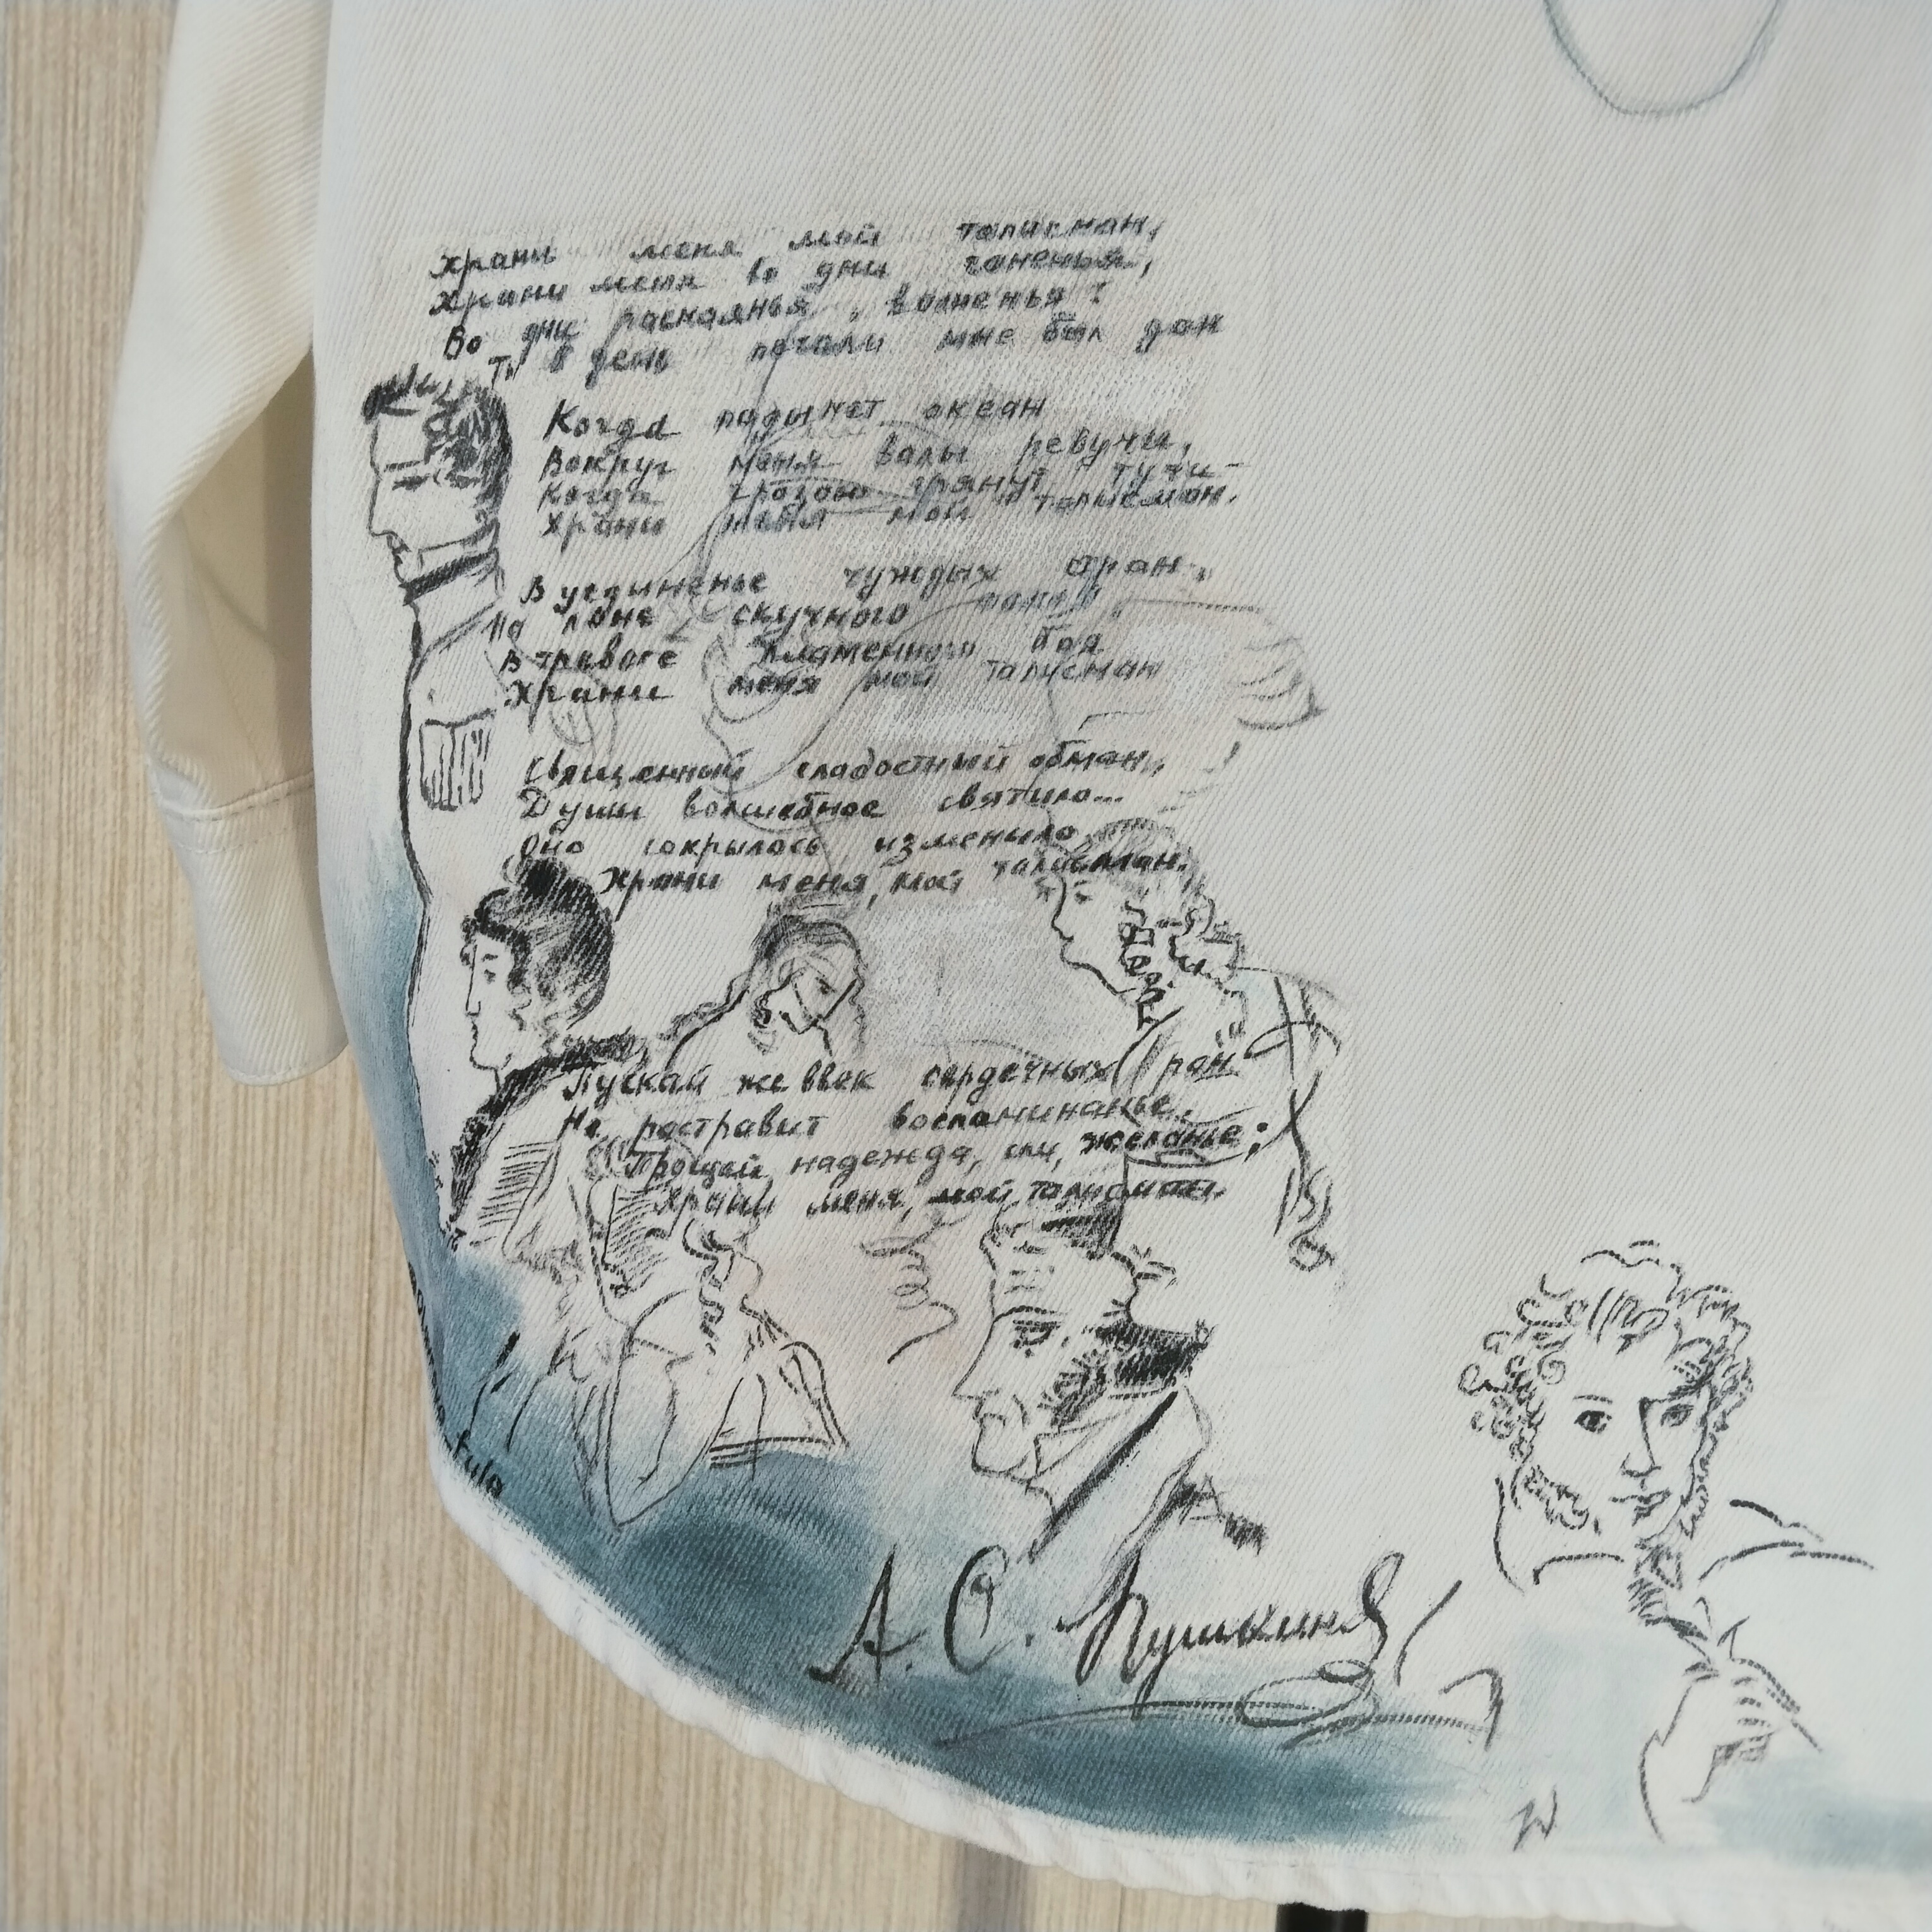 Храни меня мой талисман,
Храни меня во дни гоненья,
Во дни раскаянья, волненья:
Ты в день печали мне был дан
Когда подымет океан
Вокруг меня валы ревучи,
Когда грозою грянут тучи
Храни меня мой талисман.
В уединенье чуждых стран,
На лоне скучного покоя
В тревоге пламенного боя
Храни меня мой талисман
Священный сладостный обман,
Души волшебное светило...
Оно сокрылось изменило,
Храни меня, мой талисман.
Пускай же ввек сердечных ран
Не растравит воспоминанье.
Прощай надежда, спи, желанье;
Храни меня, мой талисман.
А. С. Пушкинъ